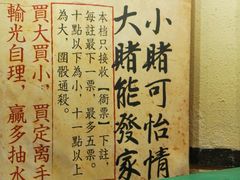 小賭可怡情
大賭能發家
本档只接收【銜票】下註，
每註最下一票，最多五票。
十點以下為小，十一點以上
為大，團骰通殺。
買大買小，買定离手
輸光自理，贏多抽水